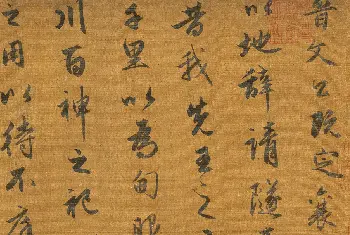 晉文公既定襄
以地辭請隧焉
昔我先王之
千里以為甸服
川百神之祀
之用以待不庭